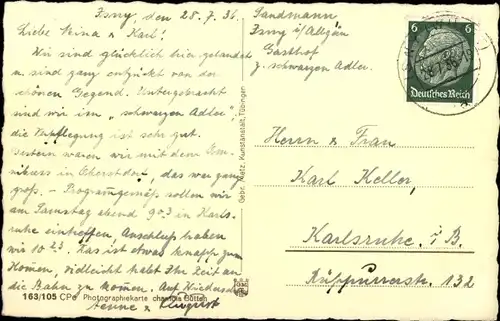 Isny, den 28.7.36.
Liebe Meina u. Karl!
Wir sind glücklich hier gelandet
u. sind ganz entzückt von der
schönen Gegend. Untergebracht
sind wir im „schwarzen Adler",
die Verpflegung ist sehr gut.
Gestern waren wir mit dem Omnibus
in Oberstdorf, das war ganz
groß. - Programmgemäß sollen wir
am Samstag abend 9.03 in Karlsruhe
eintreffen. Anschluß haben
wir 10.23. Das ist etwas knapp zum
Kommen, vielleicht habt Ihr Zeit an
die Bahn zu kommen. Auf Wiedersehn
163/105 CPo Photographiekarte
Gebr. Metz, Kunstanstalt, Tübingen
Sandmann
Isny i/Allgäu
Gasthof
z. schwarzen Adler.
6 6
Deutsches Reich
Herrn u. Frau
Karl Keller,
Karlsruhe i. B.
Rüppurrerstr. 132